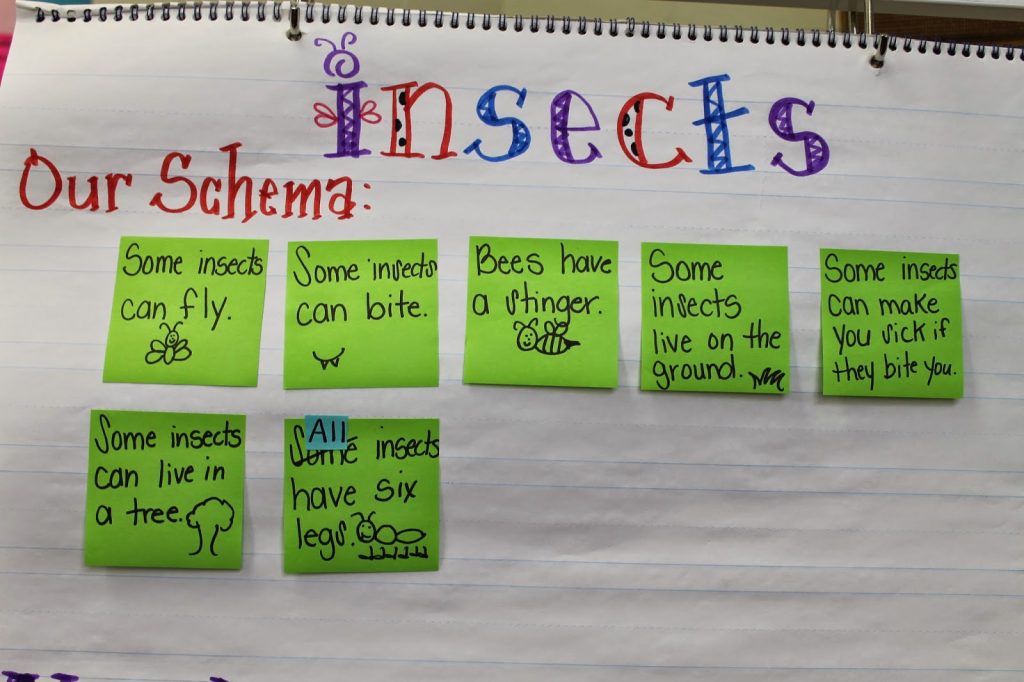 Insects
Our Schema:
Some insects
can fly.
Some insects
can bite.
Bees have
a stinger.
Some
insects
live on the
ground.
Some insects
can make
you sick if
they bite you.
Some insects
can live in
a tree.
All
Some insects
have six
legs.